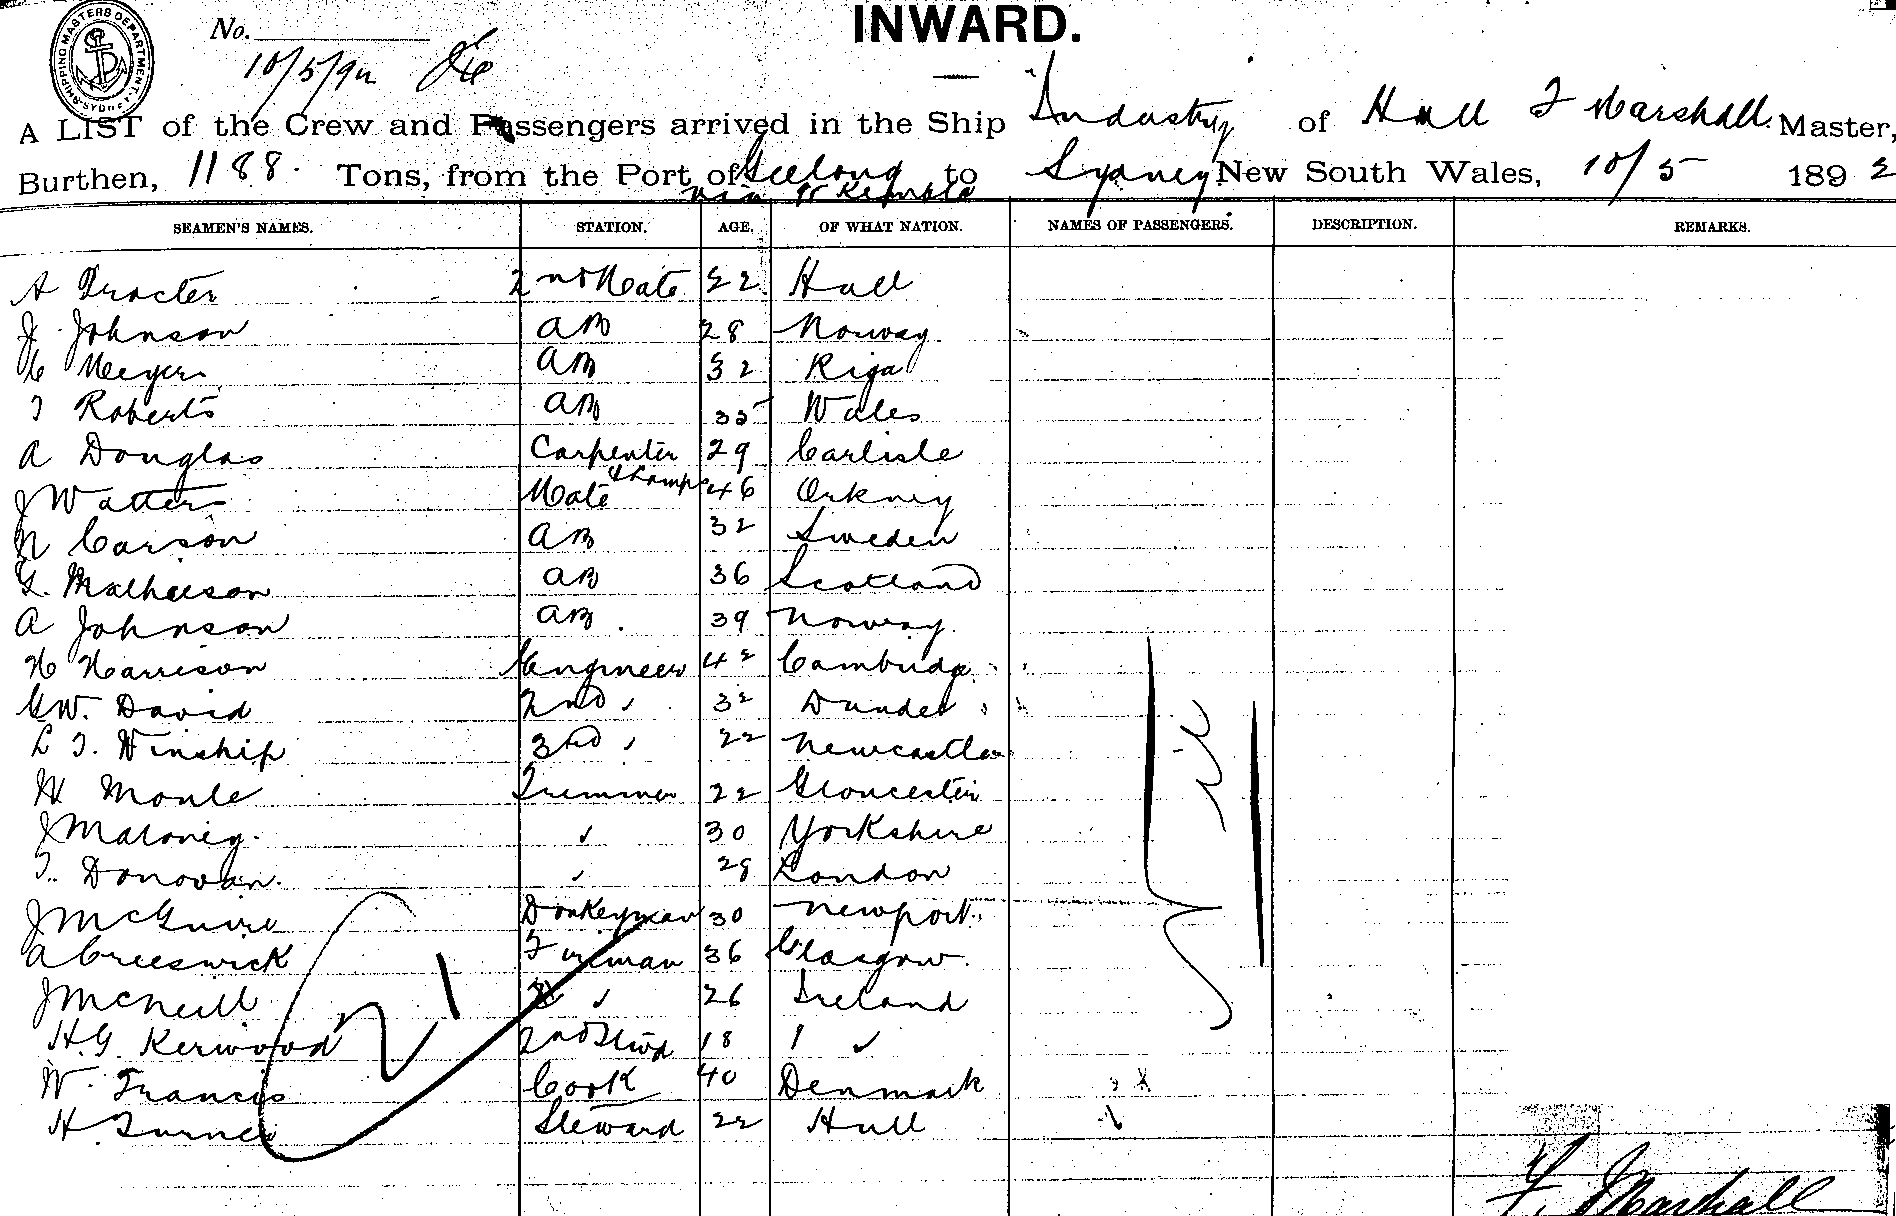 SHIPPING MASTERS DEPARTMENT. SYDNEY
INWARD.
No.
10/5/92
A LIST of the Crew and Passengers arrived in the Ship Industry of Hull F Marshall. Master,
Burthen, 1188. Tons, from the Port of Geelong to Sydney New South Wales, 10/5 1892
via Pt Kembla
SEAMEN'S NAMES. STATION. AGE. OF WHAT NATION. NAMES OF PASSENGERS. DESCRIPTION. REMARKS.
A Procter 2nd Mate 22 Hull
J Johnson AB 28 Norway
Meyer AB 32 Riga
T Roberts AB 35 Wales
A Douglas Carpenter 29 Carlisle
J Watters Mate & Lamps 46 Orkney
N Carson AB 32 Sweden
G. Matheeson AB 36 Scotland
A Johnson AB 39 Norway
H Harrison Engineer 42 Cambridge
GW. David 2nd " 32 Dundee
L T. Winship 3rd " 22 Newcastle
H Monle Trimmer 22 Gloucester
J Maloney. " 30 Yorkshire
T. Donovan. " 28 London
J McGuire Donkeyman 30 Newport.
A Creeswick Fireman 36 Glasgow.
J McNeill " 26 Ireland
H.G. Kerwood 2nd Stwd 18 "
W. Francis Cook 40 Denmark
H. Turner Steward 22 Hull
Nil
21
F. Marshall